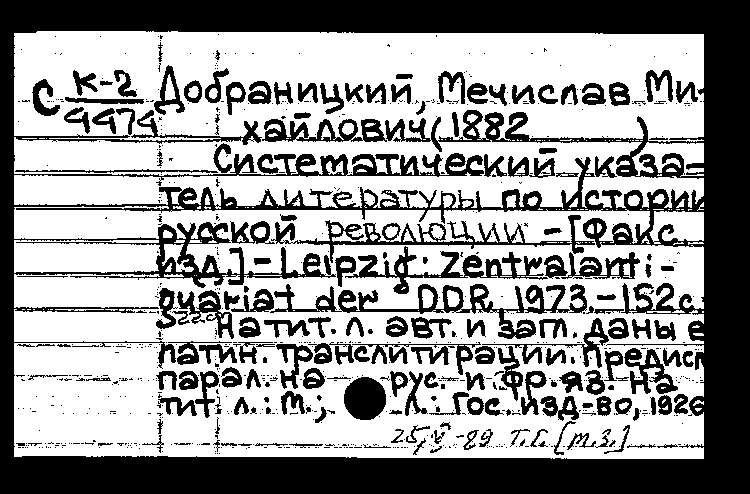 С К-2 Добраницкий, Мечислав Ми-
4474 хайлович (1882 )
Систематический указа-
тель литературы по истории
русской революции. -[Факс.
изд.].- Leipzig: Zentralanti-
quariat der DDR, 1973.-152с.;
22см
На тит. л. авт. и загл. даны в
латин. транслитирации. Предисл
парал. на рус. и фр. яз. На
тит. л.: М.; Л.: Гос. изд-во, 1926
25, V -89 т.г. [т.з.]